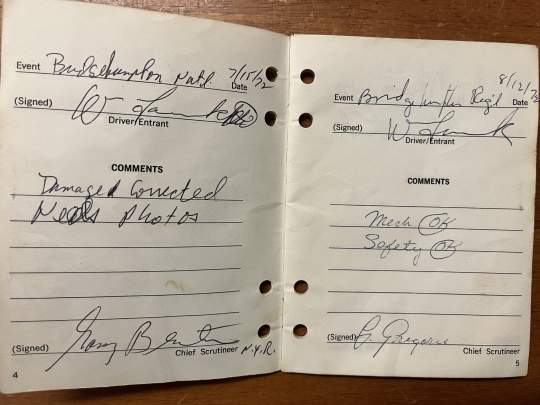 Event Bridgehampton Natl 7/15/72
Date
(Signed) W
Driver/Entrant
COMMENTS
Damage Corrected
Needs Photos
(Signed) Chief Scrutineer N.Y.R.
4
Event Bridgehampton Reg'l 8/12/72
Date
(Signed) W
Driver/Entrant
COMMENTS
Mech OK
Safety OK
(Signed) G. Gregorie
Chief Scrutineer
5